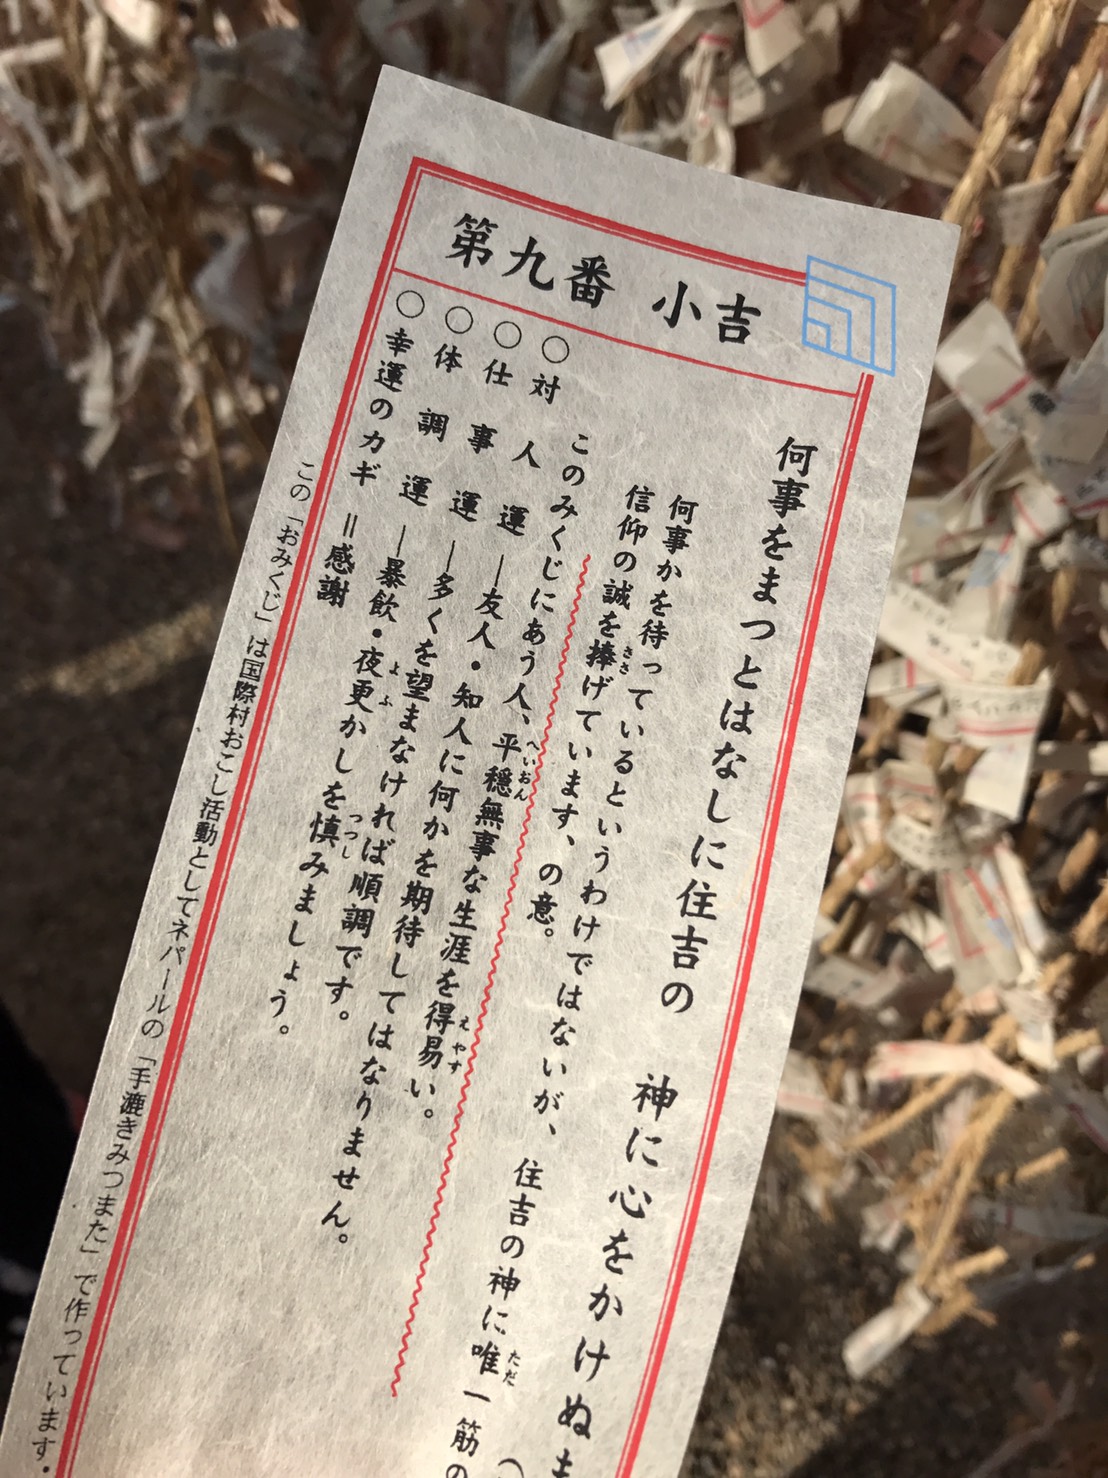 第九番 小吉
何事をまつとはなしに住吉の 神に心をかけぬ
何事かを待っているというわけではないが、住吉の神に唯一筋の
信仰の誠を捧げています、の意。
このみくじにあう人、平穏無事な生涯を得易い。
○対人運―友人・知人に何かを期待してはなりません。
○仕事運―多くを望まなければ順調です。
○体調運―暴飲・夜更かしを慎みましょう。
○幸運のカギ=感謝
この「おみくじ」は国際村おこし活動としてネパールの「手漉きみつまた」で作っています・